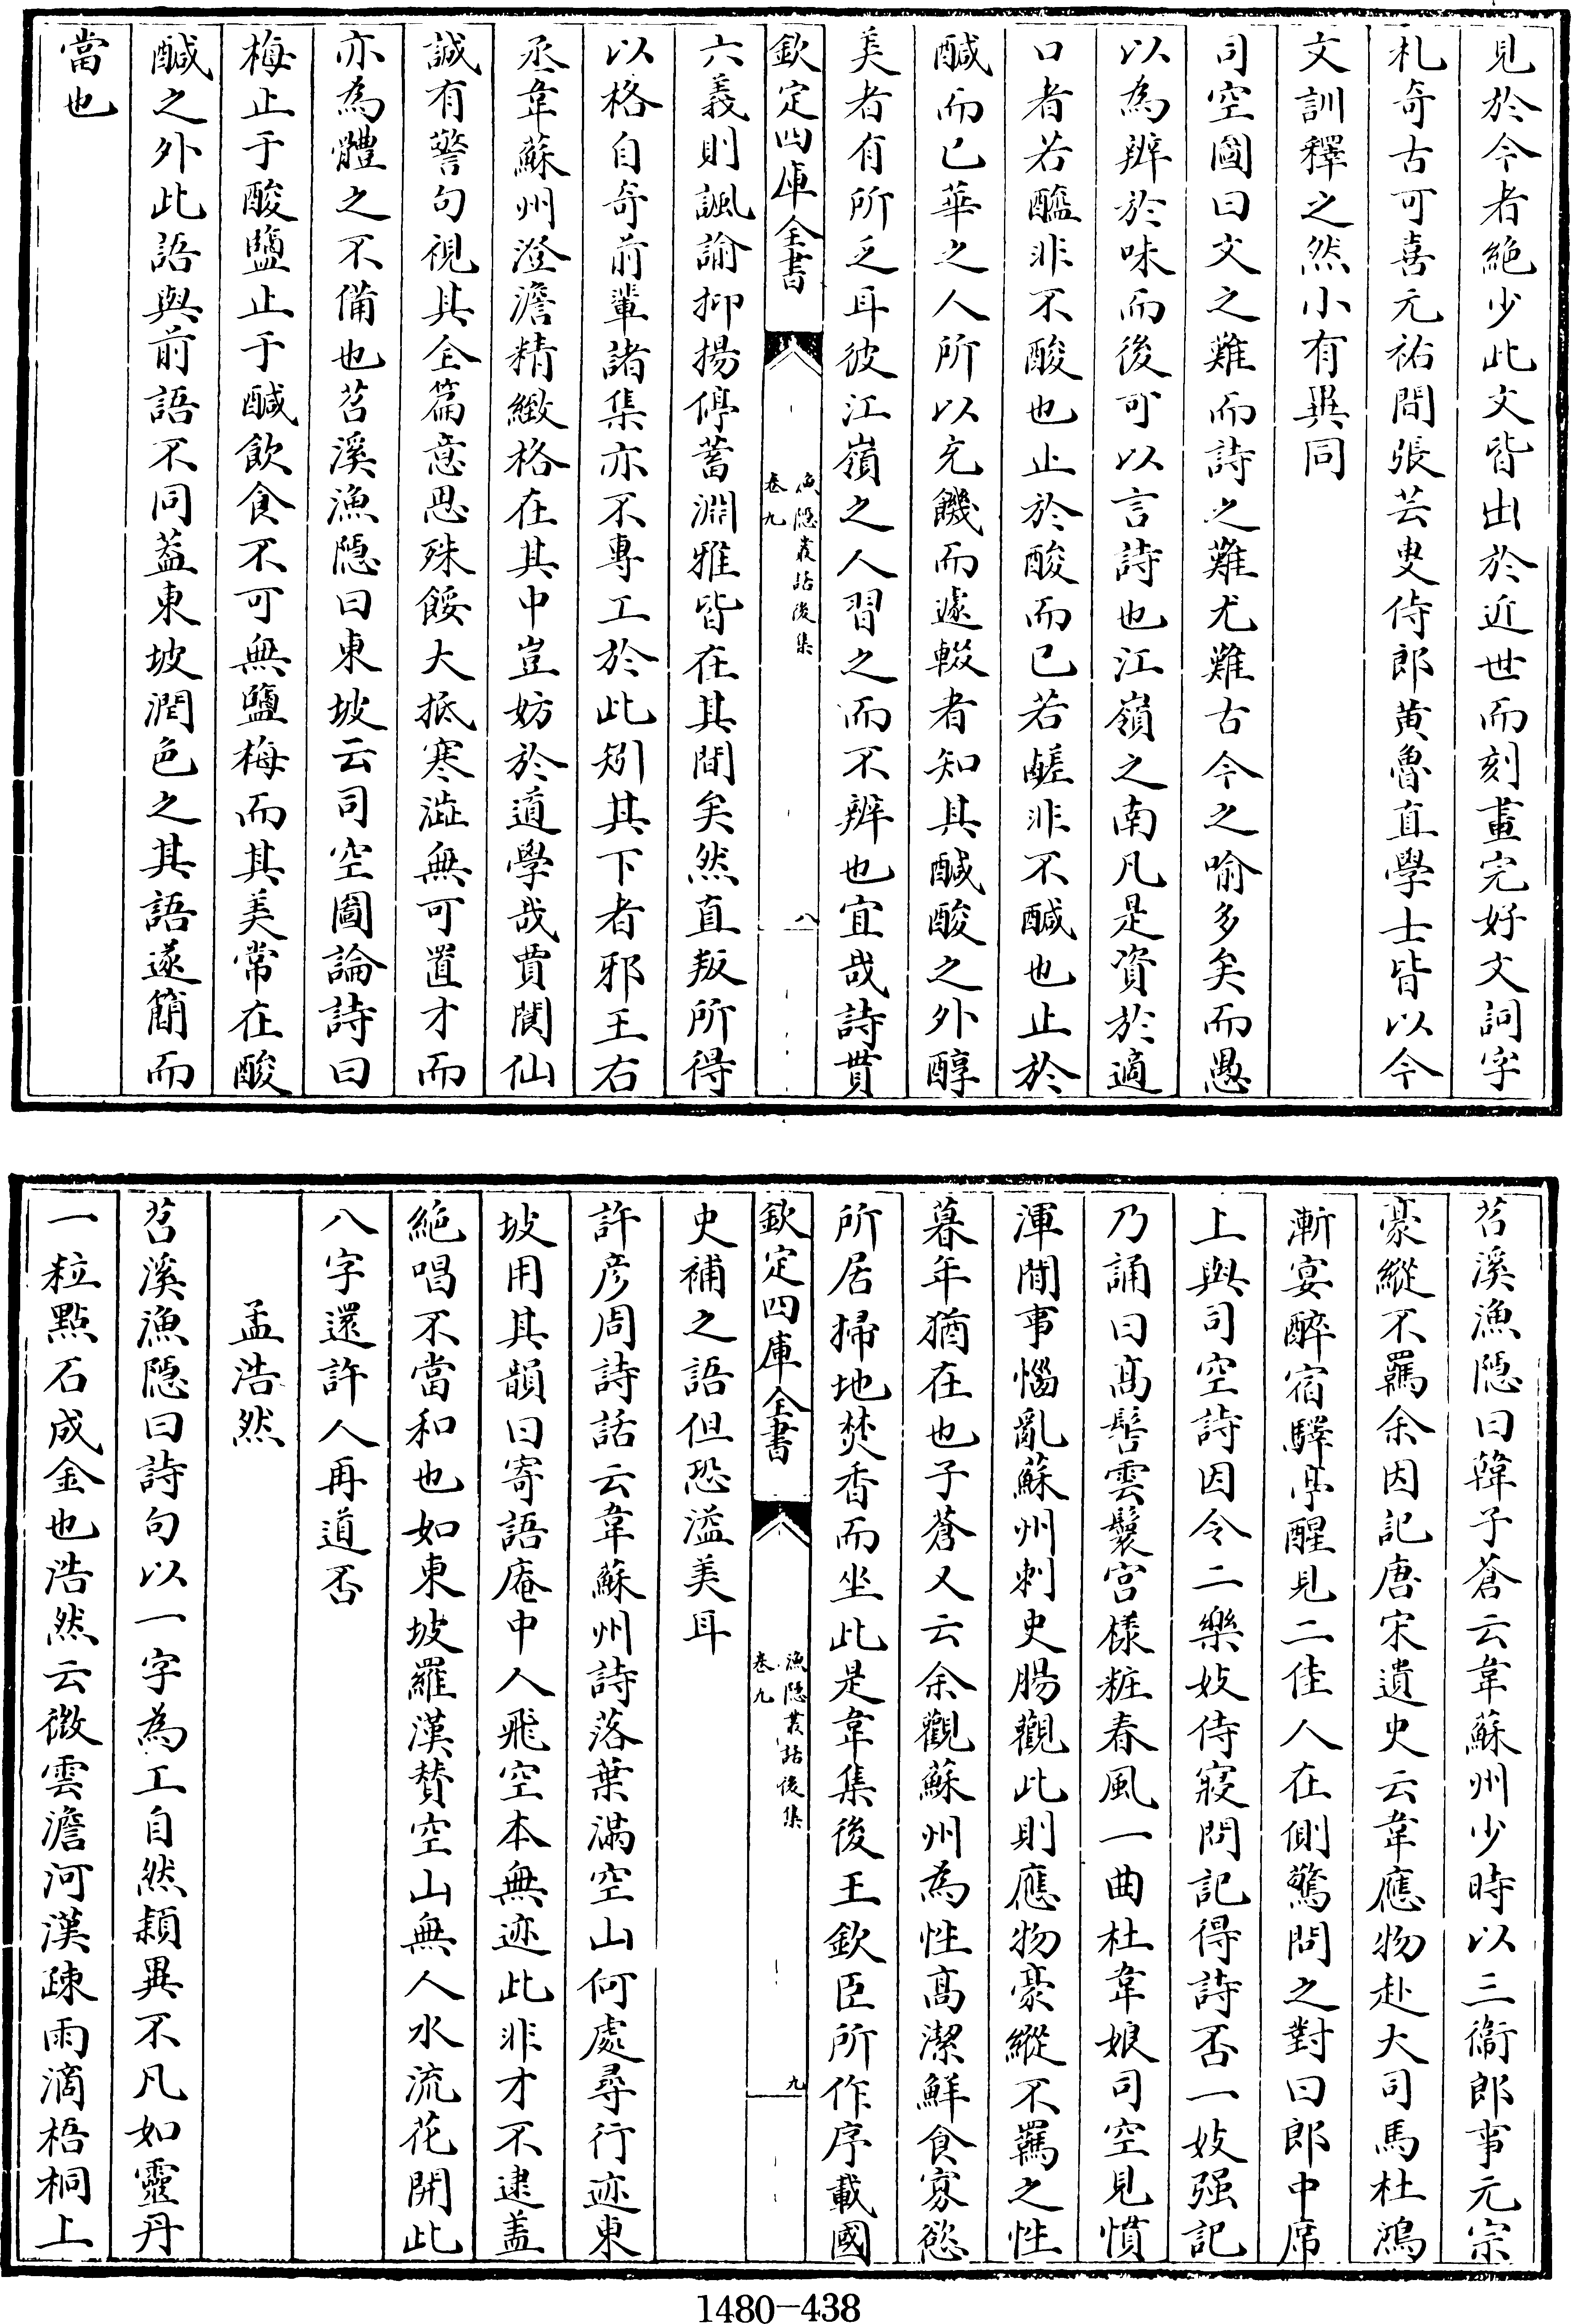 見於今者絶少此文皆出於近世而刻畫完好文詞字
札奇古可喜元祐間張芸叟侍郎黄魯直學士皆以今
文訓釋之然小有異同
司空圖曰文之難而詩之難尤難古今之喻多矣而愚
以為辨於味而後可以言詩也江嶺之南凡是資於適
口者若醯非不酸也止於酸而已若鹺非不鹹也止於
鹹而已華之人所以充饑而遽輟者知其鹹酸之外醇
美者有所乏耳彼江嶺之人習之而不辨也宜哉詩貫
欽定四庫全書
漁隠叢話後集
卷九
八
六義則諷諭抑揚停蓄淵雅皆在其間矣然直叛所得
以格自奇前輩諸集亦不專工於此矧其下者邪王右
丞韋蘇州澄澹精緻格在其中豈妨於道學哉賈閬仙
誠有警句視其全篇意思殊餒大抵寒澁無可置才而
亦為體之不備也苕溪漁隠曰東坡云司空圖論詩曰
梅止于酸鹽止于鹹飲食不可無鹽梅而其美常在酸
鹹之外此語與前語不同蓋東坡潤色之其語遂簡而
當也
苕溪漁隠曰韓子蒼云韋蘇州少時以三衞郎事元宗
豪縱不羈余因記唐宋遺史云韋應物赴大司馬杜鴻
漸宴醉宿驛亭醒見二佳人在側驚問之對曰郎中席
上與司空詩因令二樂妓侍寢問記得詩否一妓强記
乃誦曰髙髻雲鬟宫樣粧春風一曲杜韋娘司空見慣
渾閒事惱亂蘇州刺史腸觀此則應物豪縱不羈之性
暮年猶在也子蒼又云余觀蘇州為性髙潔鮮食寡慾
所居掃地焚香而坐此是韋集後王欽臣所作序載國
欽定四庫全書
漁隠叢話後集
卷九
九
史補之語但恐溢美耳
許彦周詩話云韋蘇州詩落葉滿空山何處尋行迹東
坡用其韻曰寄語庵中人飛空本無迹此非才不逮蓋
絶唱不當和也如東坡羅漢賛空山無人水流花開此
八字還許人再道否
孟浩然
苕溪漁隠曰詩句以一字為工自然頴異不凡如靈丹
一粒點石成金也浩然云微雲澹河漢疎雨滴梧桐上
1480-438